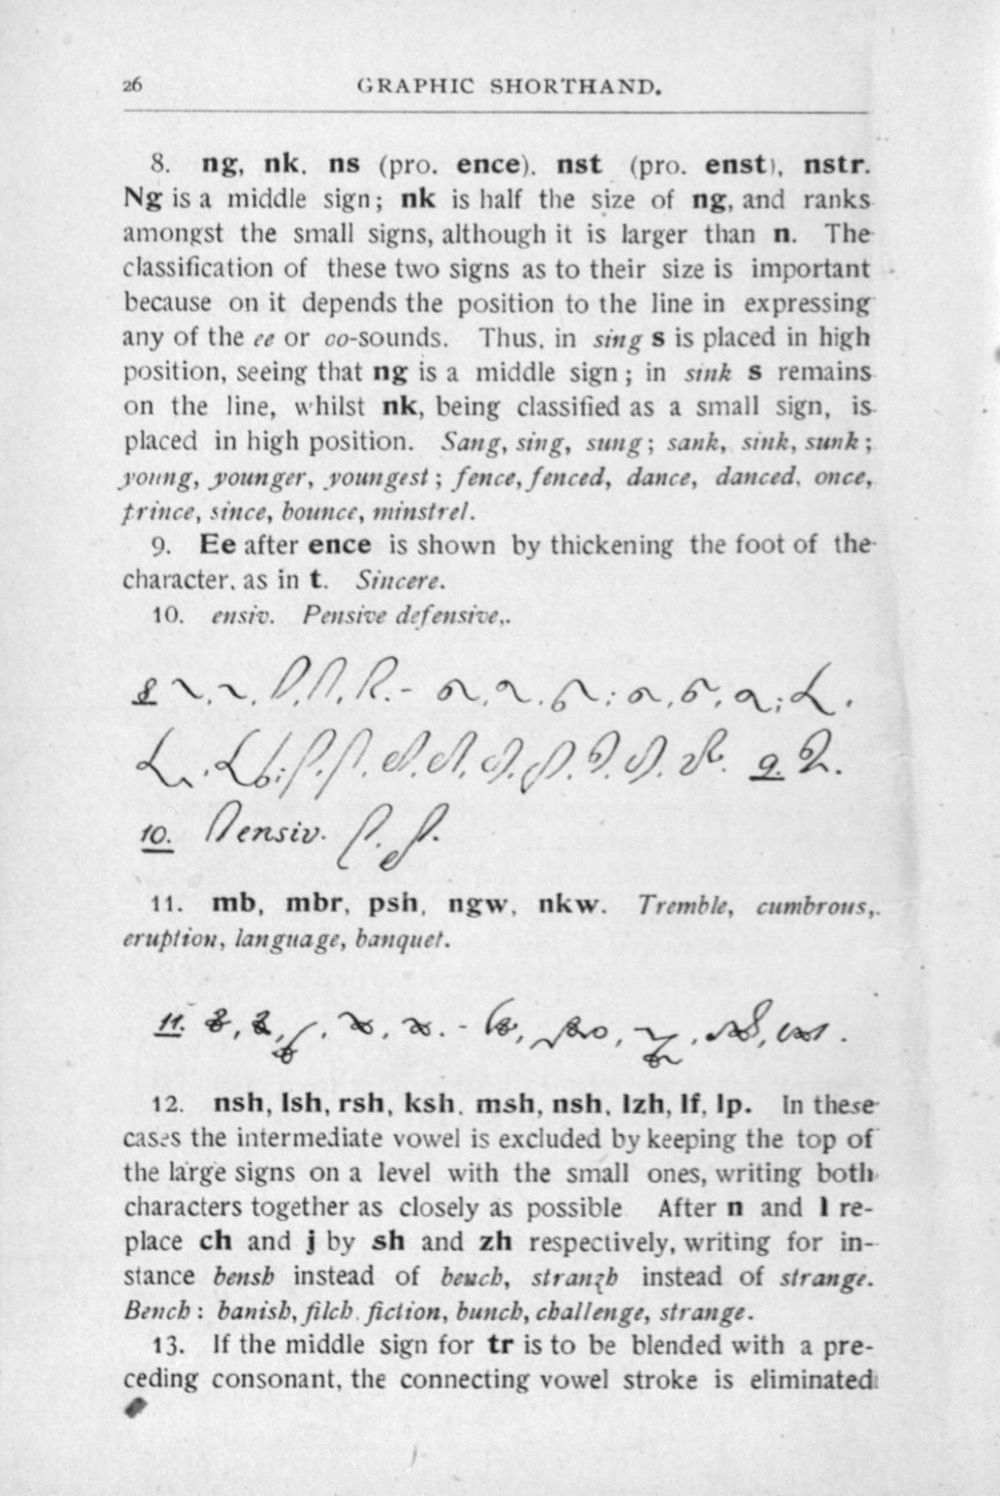 26
GRAPHIC SHORTHAND.
8. ng, nk, ns (pro. ence). nst (pro. enst), nstr.
Ng is a middle sign; nk is half the size of ng, and ranks
amongst the small signs, although it is larger than n. The
classification of these two signs as to their size is important
because on it depends the position to the line in expressing
any of the ee or oo-sounds. Thus, in sing s is placed in high
position, seeing that ng is a middle sign; in sink s remains
on the line, whilst nk, being classified as a small sign, is
placed in high position. Sang, sing, sung; sank, sink, sunk;
young, younger, youngest; fence, fenced, dance, danced, once,
prince, since, bounce, minstrel.
9. Ee after ence is shown by thickening the foot of the
character, as in t. Sincere.
10. ensiv. Pensive defensive,.
8
9.
10. ensiv.
11. mb, mbr, psh, ngw, nkw. Tremble, cumbrous,.
eruption, language, banquet.
11.
12. nsh, lsh, rsh, ksh, msh, nsh, lzh, lf, lp. In these
cases the intermediate vowel is excluded by keeping the top of
the large signs on a level with the small ones, writing both
characters together as closely as possible After n and l re-
place ch and j by sh and zh respectively, writing for in-
stance bensh instead of bench, stranzh instead of strange.
Bench: banish, filch, fiction, bunch, challenge, strange.
13. If the middle sign for tr is to be blended with a pre-
ceding consonant, the connecting vowel stroke is eliminated